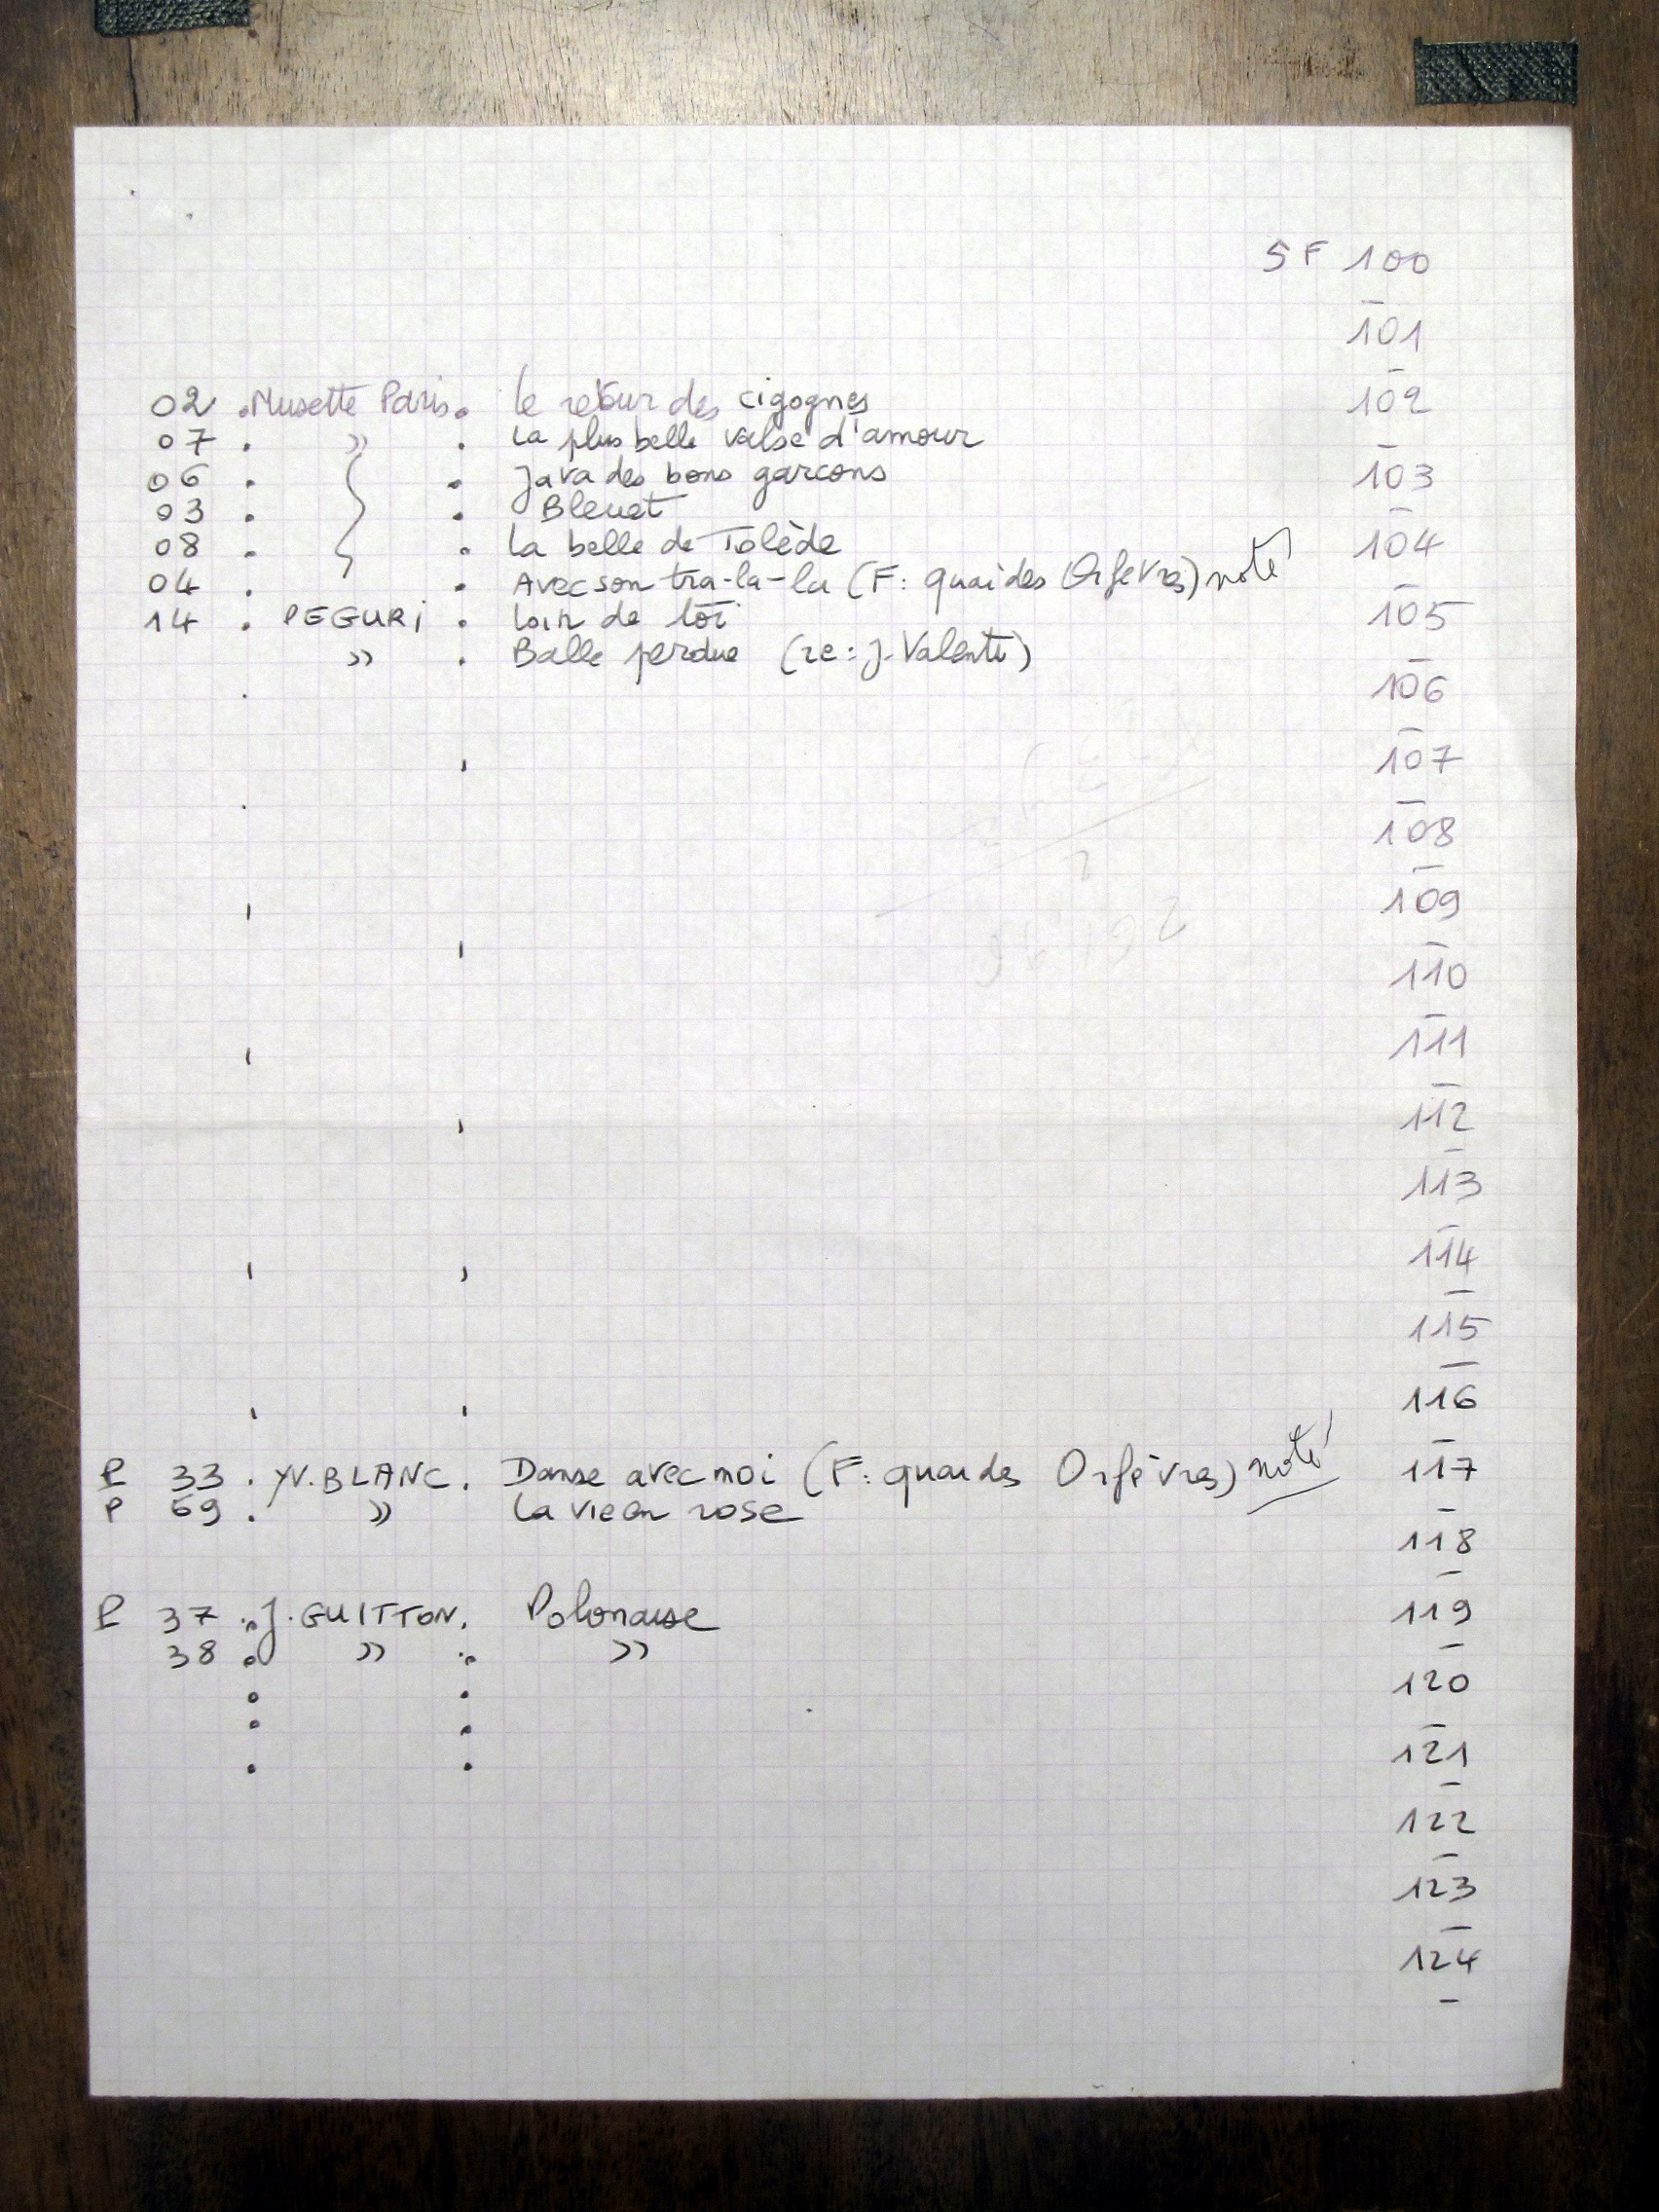 5 F 100
101
02 . Musette Paris . Le retour des cigognes 102
07 . » . La plus belle valse d'amour
06 . . Java des bons garcons 103
03 . . Bleuet
08 . . La belle de Tolède 104
04 . . Avec son tra-la-la (F: quai des Orfèvres) noté
14 . PEGURi . Loin de toi 105
» . Balle perdue (re: J. Valenti)
106
107
108
109
110
111
112
113
114
115
116
P 33 . YV. BLANC . Danse avec moi (F: quai des Orfèvres) noté 117
P 69 . » La vie en rose
118
P 37 . J. GUITTON . Polonaise 119
38 . » . »
120
121
122
123
124